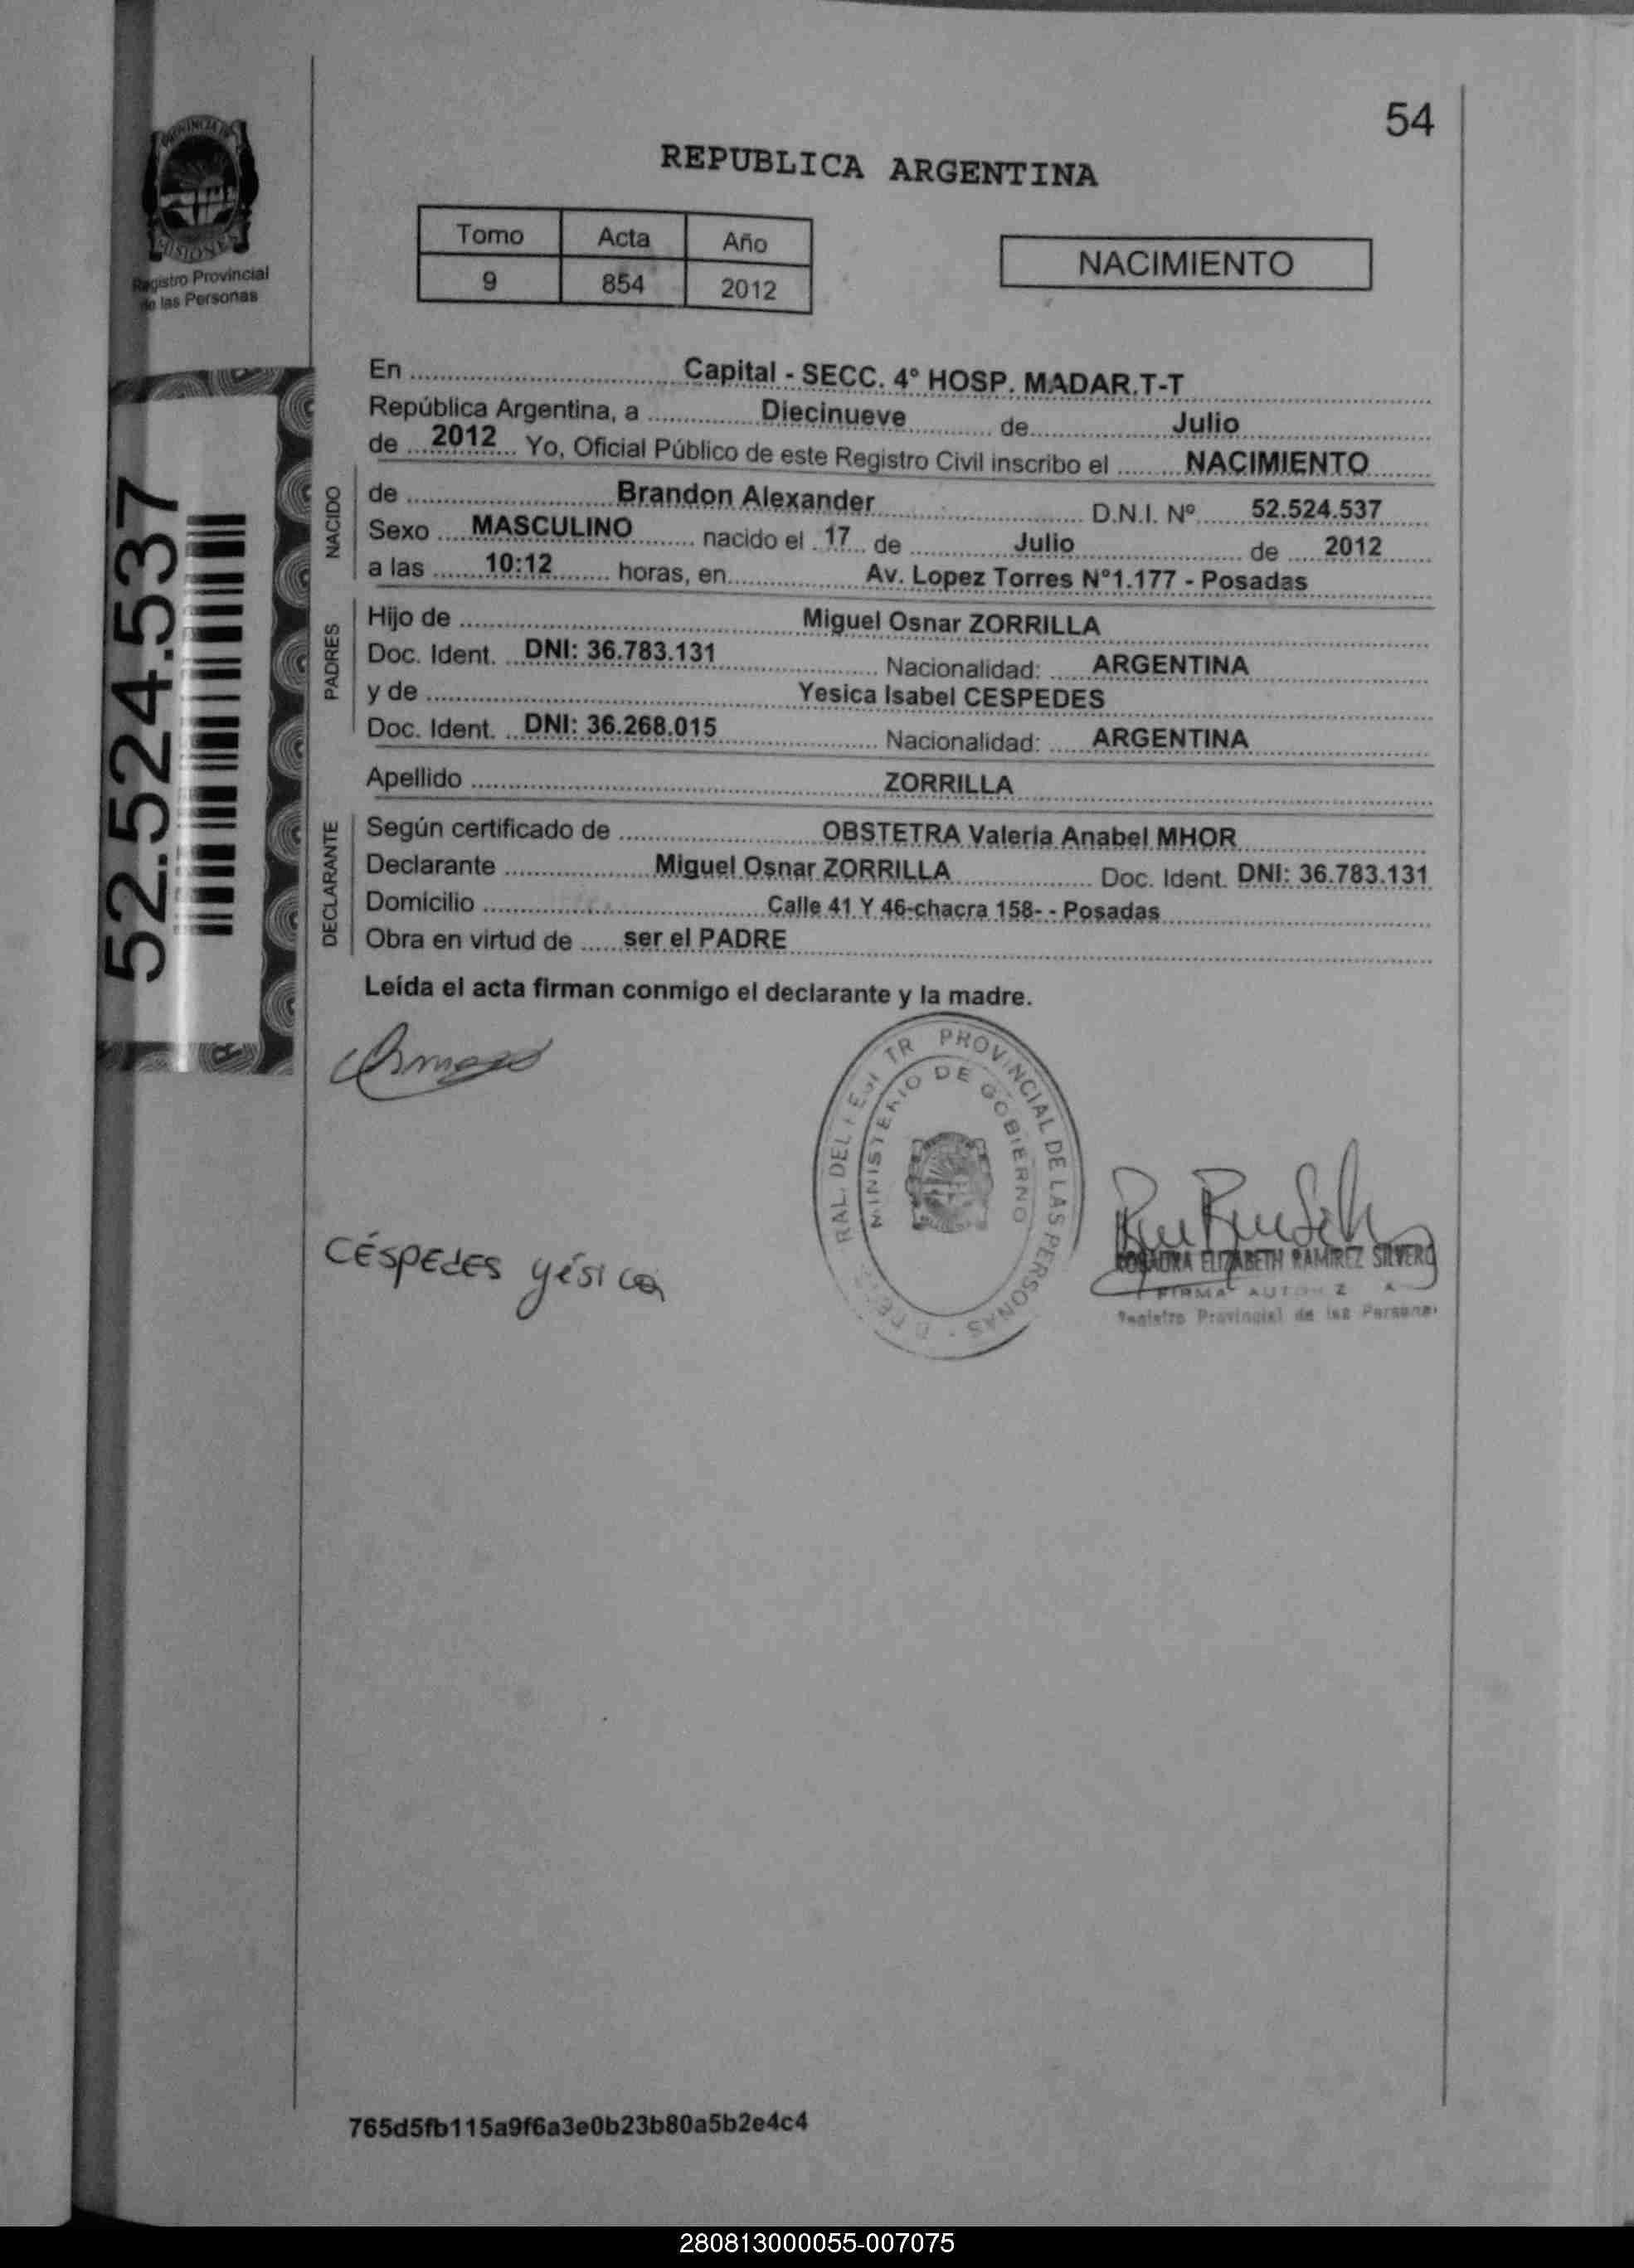 54
PROVINCIA DE
MISIONES
Registro Provincial
de las Personas
REPUBLICA ARGENTINA
Tomo Acta Año
9 854 2012
NACIMIENTO
En Capital - SECC. 4º HOSP. MADAR.T-T
República Argentina, a Diecinueve de Julio
de 2012 Yo, Oficial Público de este Registro Civil inscribo el NACIMIENTO
NACIDO
de Brandon Alexander D.N.I. Nº 52.524.537
Sexo MASCULINO nacido el 17 de Julio de 2012
a las 10:12 horas, en Av. Lopez Torres N°1.177 - Posadas
PADRES
Hijo de Miguel Osnar ZORRILLA
Doc. Ident. DNI: 36.783.131 Nacionalidad: ARGENTINA
y de Yesica Isabel CESPEDES
Doc. Ident. DNI: 36.268.015 Nacionalidad: ARGENTINA
Apellido ZORRILLA
DECLARANTE
Según certificado de OBSTETRA Valeria Anabel MHOR
Declarante Miguel Osnar ZORRILLA Doc. Ident. DNI: 36.783.131
Domicilio Calle 41 Y 46-chacra 158- - Posadas
Obra en virtud de ser el PADRE
Leída el acta firman conmigo el declarante y la madre.
52.524.537
PROVINCIAL DE LAS PERSONAS
MINISTERIO DE GOBIERNO
CÉSPEdES yésica
ROSAURA ELIZABETH RAMIREZ SILVERO
FIRMA
Registro Provincial de las Personas
765d5fb115a9f6a3e0b23b80a5b2e4c4
280813000055-007075